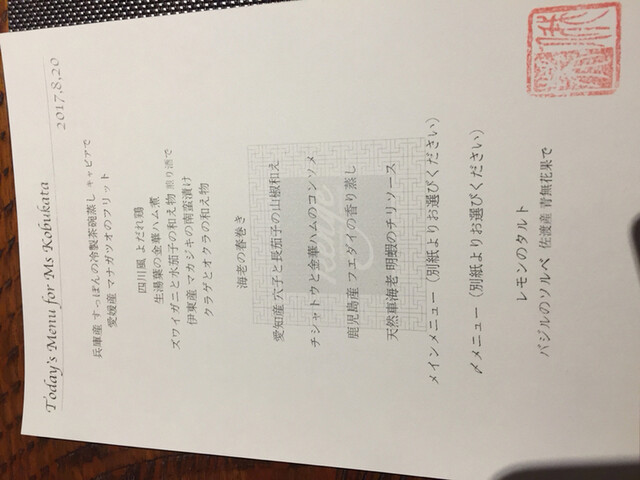 Today's Menu for Ms Kobukata
2017.8.20
兵庫産 すっぽんの冷製茶碗蒸し キャビアで
愛媛産 マナガツオのフリット
四川風 よだれ鶏
生湯葉の金華ハム煮
ズワイガニと水茄子の和え物 煎り酒で
伊東産 マカジキの南蛮漬け
クラゲとオクラの和え物
海老の春巻き
愛知産 穴子と長茄子の山椒和え
チシャトウと金華ハムのコンソメ
鹿児島産 フエダイの香り蒸し
天然車海老 明蝦のチリソース
メインメニュー（別紙よりお選びください）
〆メニュー（別紙よりお選びください）
レモンのタルト
バジルのソルベ 佐渡産 青無花果で